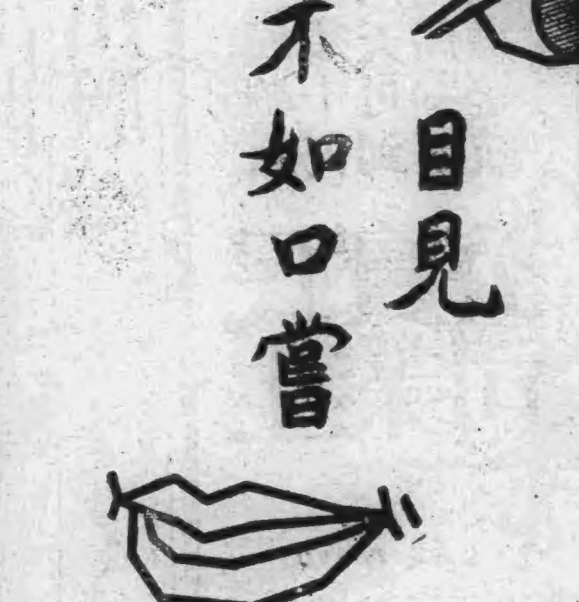 目見
不如口嘗